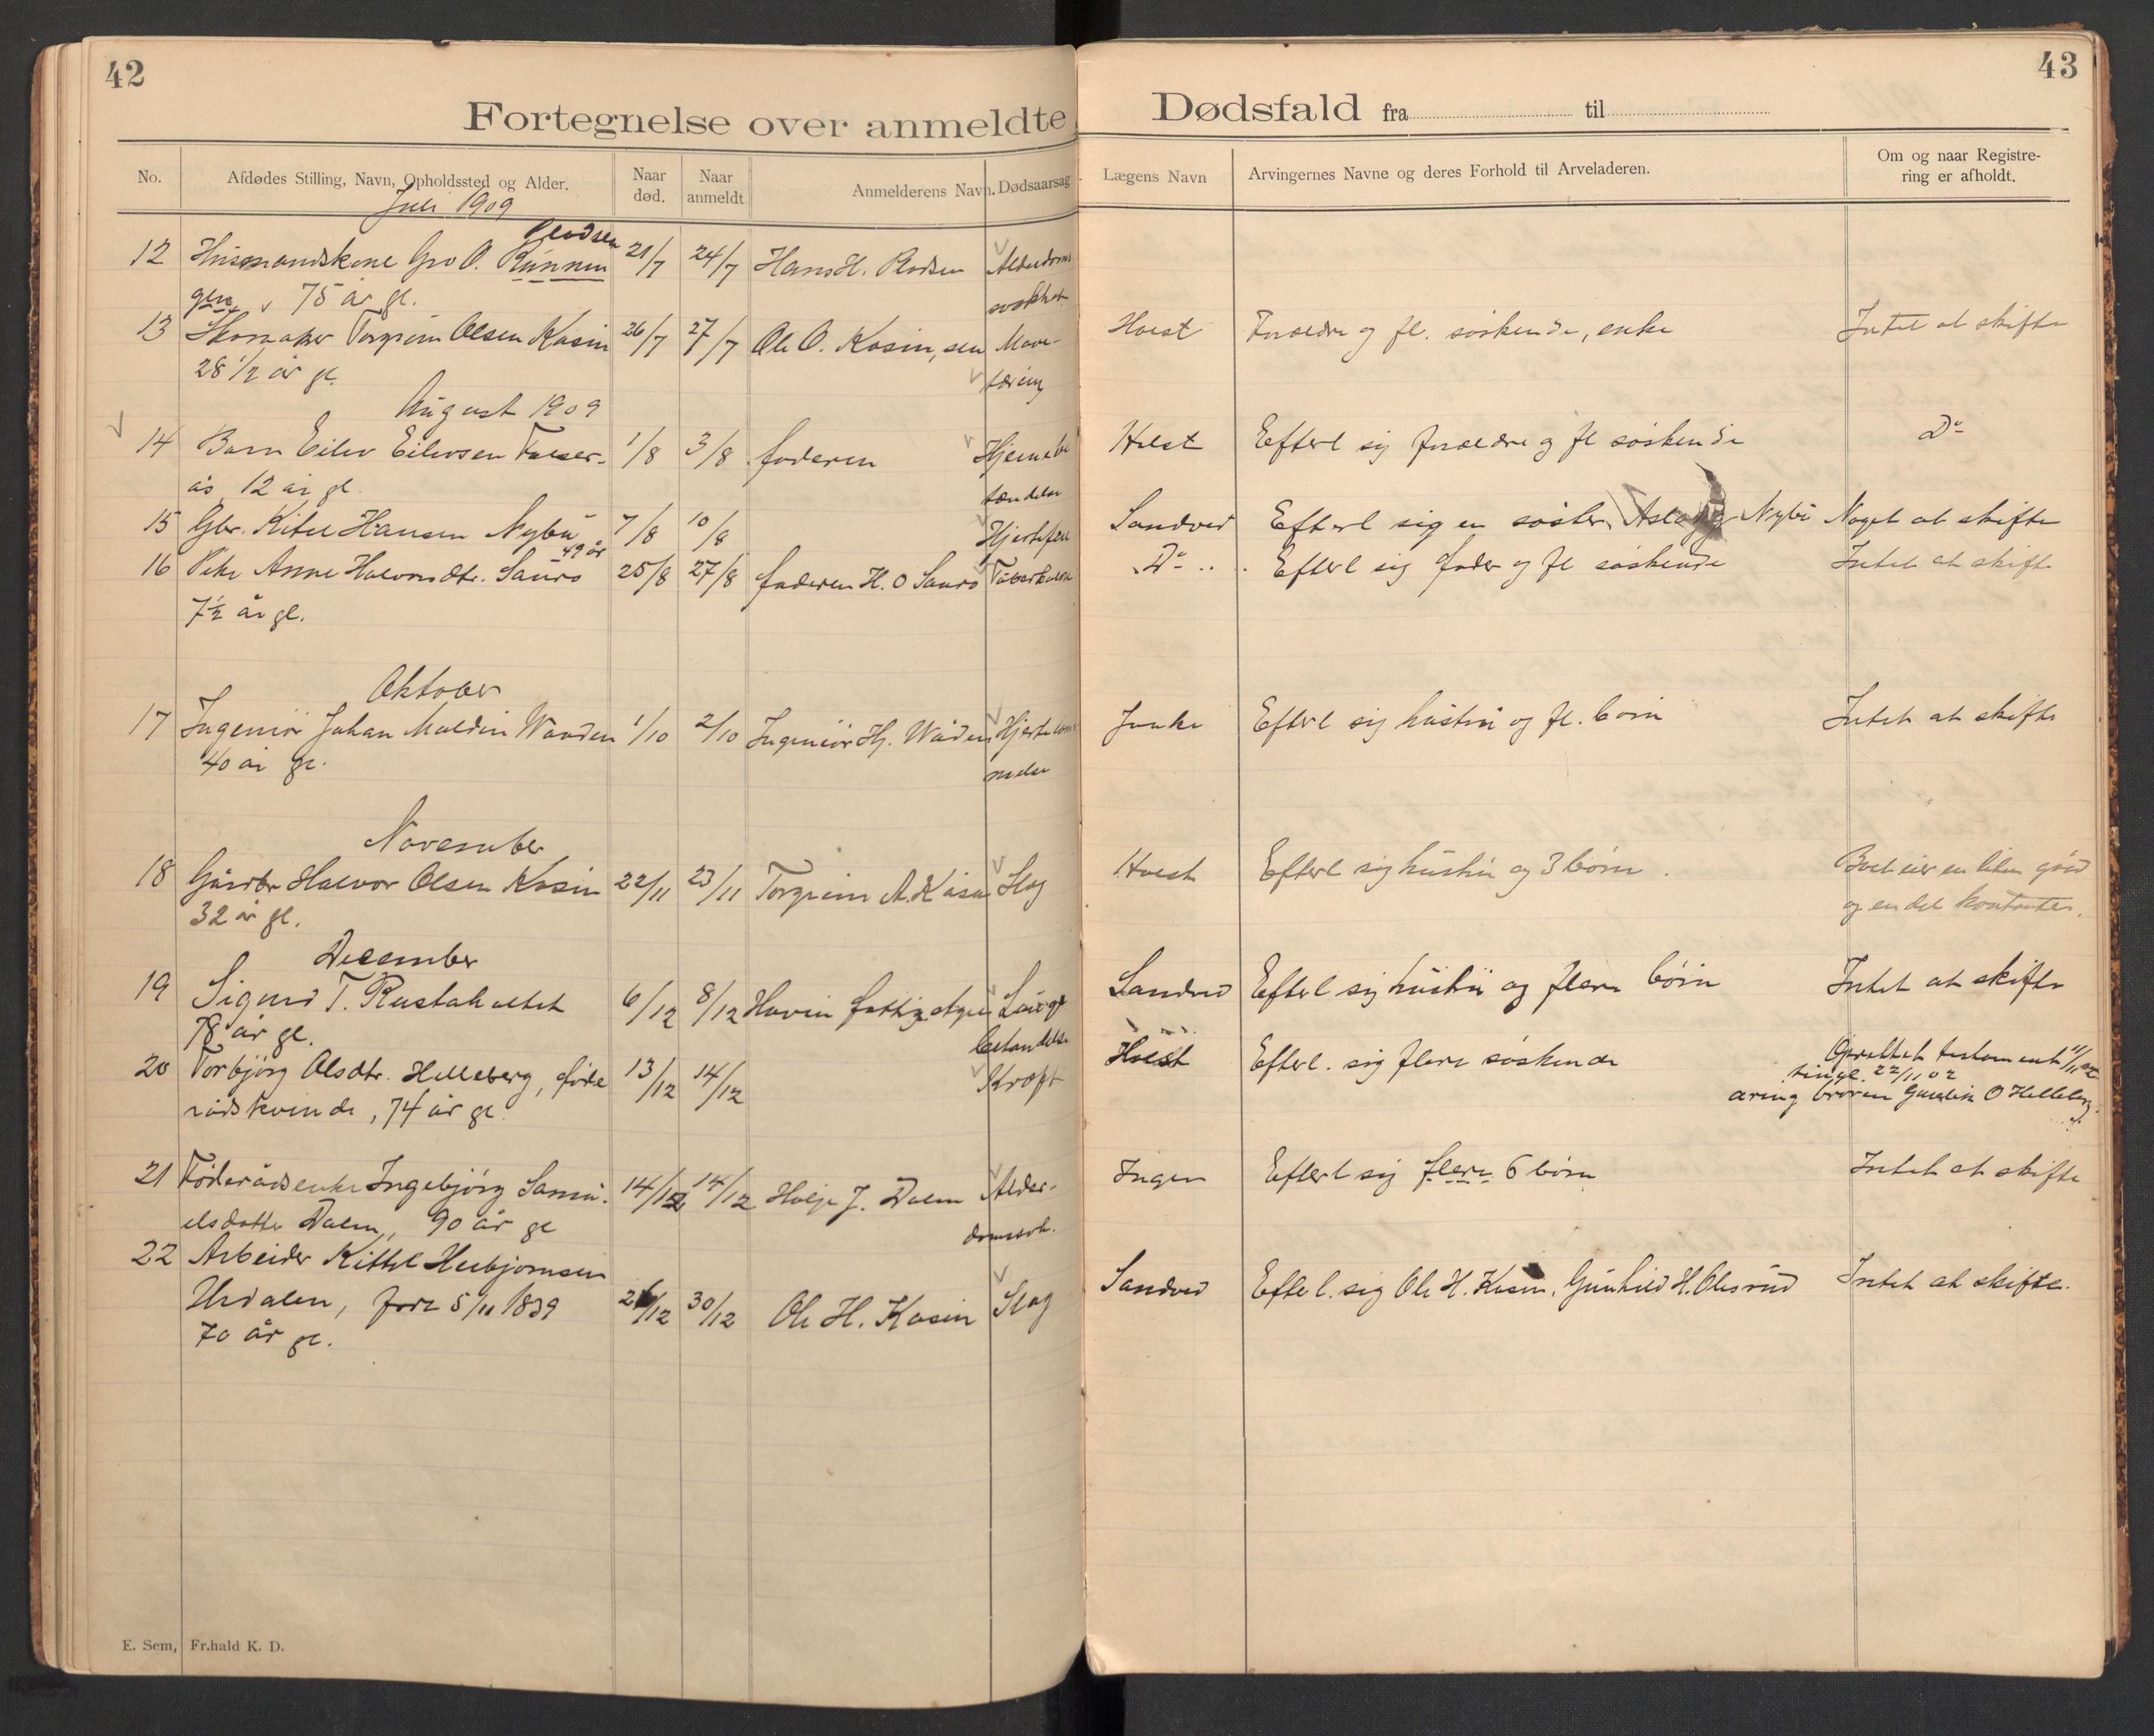 42
Fortegnelse over anmeldte
No.
Afdødes Stilling, Navn, Opholdssted og Alder.
Naar død.
Naar anmeldt
Anmelderens Navn.
Dødsaarsag
Juli 1909
12 Husmandskone Gro O. Runnin 21/7 24/7 Hans H. Alderdoms
gen, 75 år gl. svakhet
13 Skomaker Torgrim Olsen Kasin 26/7 27/7 Ole O. Kasin, sen Mave-
28 1/2 år gl. tæring
August 1909
14 Barn Eilev Eilevsen 1/8 3/8 faderen Hjernebe
ås, 12 år gl. tændelse
15 Gbr. Kitil Hansen Nybu 7/8 10/8 Hjertefeil
49 år
16 Pike Anne Halvorsdtr. Sauro 25/8 27/8 faderen H. O Sauro Tuberkulose
7 1/2 år gl.
Oktober
17 Ingeniør Johan Waaden 1/10 2/10 Ingeniør Hj. Wåden
40 år gl.
November
18 Gårdbr Halvor Olsen Kasin 22/11 23/11 Torgrim A. Kåsa Slag
32 år gl.
December
19 Sigurd T. Rustaholtet 6/12 8/12 Hovin fattigstyre Lunge
78 år gl. betændelse
20 Torbjörg Olsdtr. Helleberg, føde 13/12 14/12 Kræft
rådskvinde, 74 år gl.
21 Føderådsenke Ingebjörg Samu- 14/12 14/12 J. Dalen Alder-
elsdatter Dalen, 90 år gl domssvk.
22 Arbeider Kittil Herbjørnsen
Urdalen, født 5/11 1839 /12 30/12 Ole H. Kasin Slag
70 år gl.
E. Sem, Fr.hald K. D.
43
Dødsfald fra til
Lægens Navn
Arvingernes Navne og deres Forhold til Arveladeren.
Om og naar Registrering er afholdt.
Holst Foraeldre og fl. søskende, enke Intet at skifte
Holst Efterl sig foraeldre og fl søskende Do
Sandved Efterl sig en søster, Aslaug Nybu Noget at skifte
Do Efterl sig fader og fl søskende Intet at skifte
Efterl sig hustru og fl. børn Intet at skifte
Holst Efterl sig hustru og 3 børn. Boet eier en liten gård
og en del kontanter.
Sandved Efterl sig hustru og flere børn Intet at skifte
Holst Efterl. sig flere søskende Oprettet testament 11/11 02
tingl. 22/11 02
arving broren O Helleberg.
Ingen Efterl sig flere 6 børn Intet at skifte
Sandved Efterl. sig Ole H. Kasin, Gunhild H. Olesrud Intet at skifte.